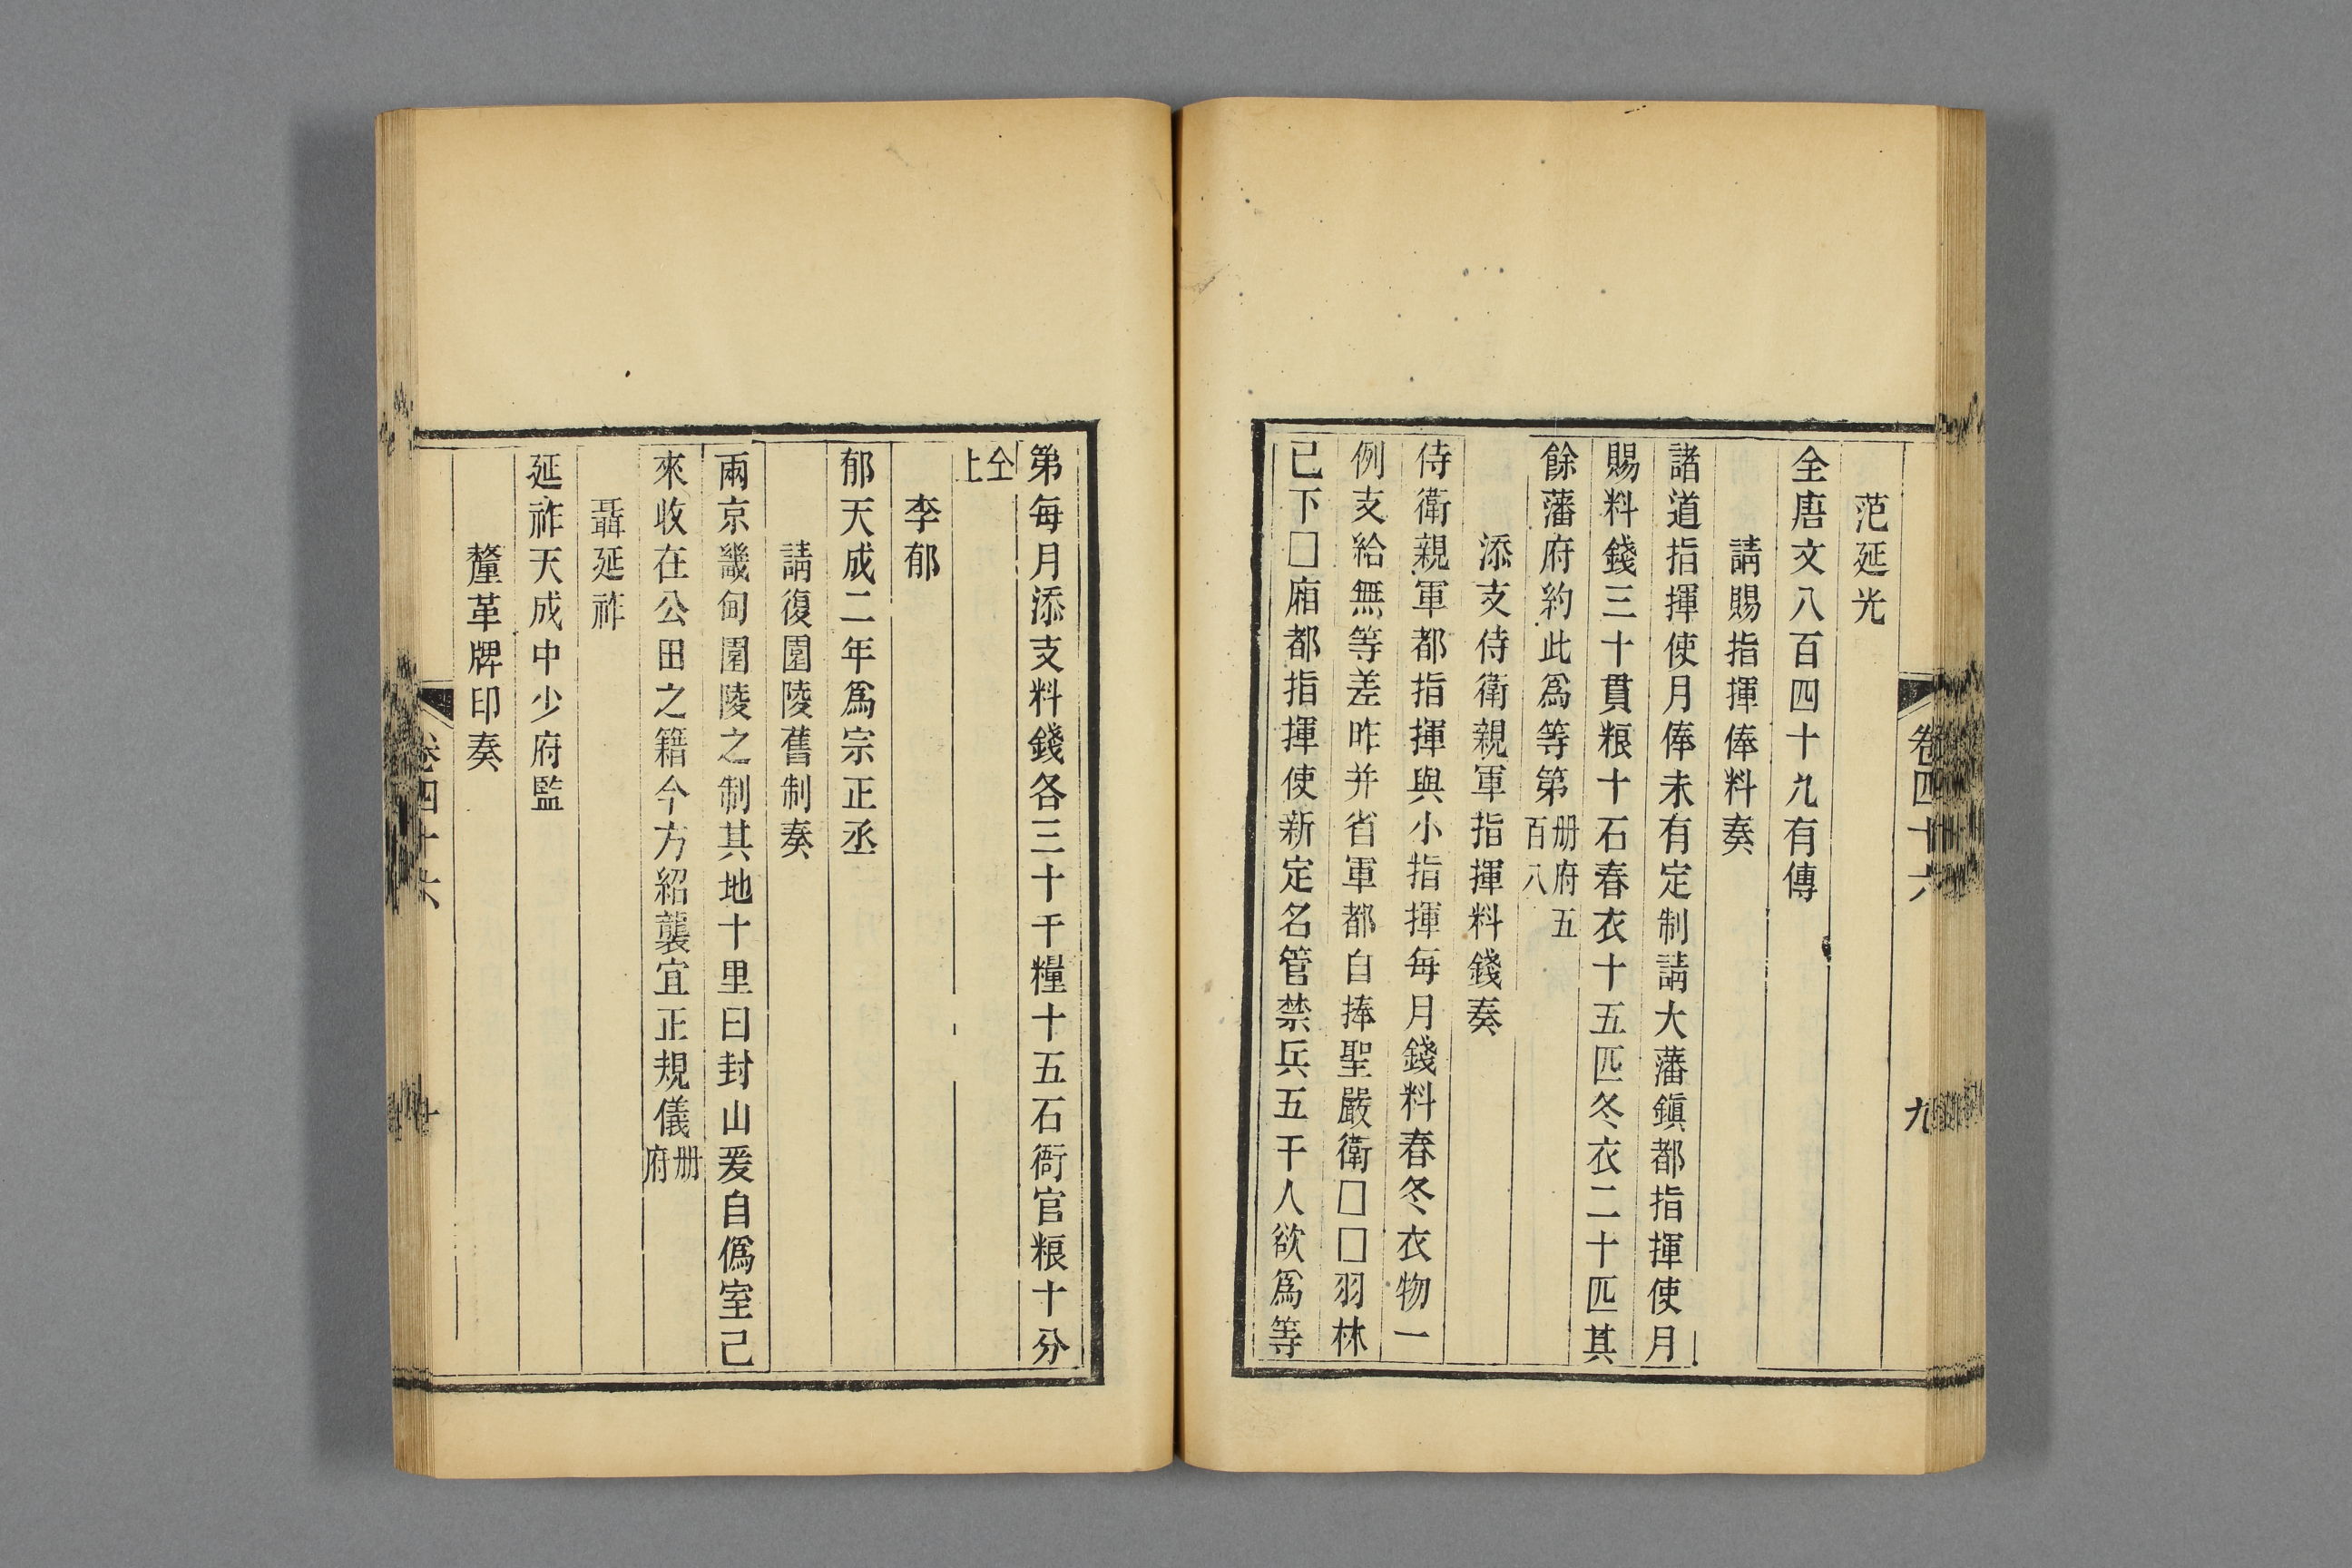 卷四十六
九
范延光
全唐文八百四十九有傳
請賜指揮俸料奏
諸道指揮使月俸未有定制請大藩鎭都指揮使月
賜料錢三十貫粮十石春衣十五匹冬衣二十匹其
餘藩府約此爲等第册府五百八
添支侍衛親軍指揮料錢奏
侍衛親軍都指揮與小指揮每月錢料春冬衣物一
例支給無等差昨并省軍都自捧聖嚴衛□□羽林
已下□廂都指揮使新定名管禁兵五千人欲爲等
第每月添支料錢各三十千糧十五石衙官粮十分
仝上
李郁
郁天成二年爲宗正丞
請復園陵舊制奏
兩京畿甸園陵之制其地十里曰封山爰自僞室己
來收在公田之籍今方紹襲宜正規儀册府
聶延祚
延祚天成中少府監
釐革牌印奏
卷四十六
十